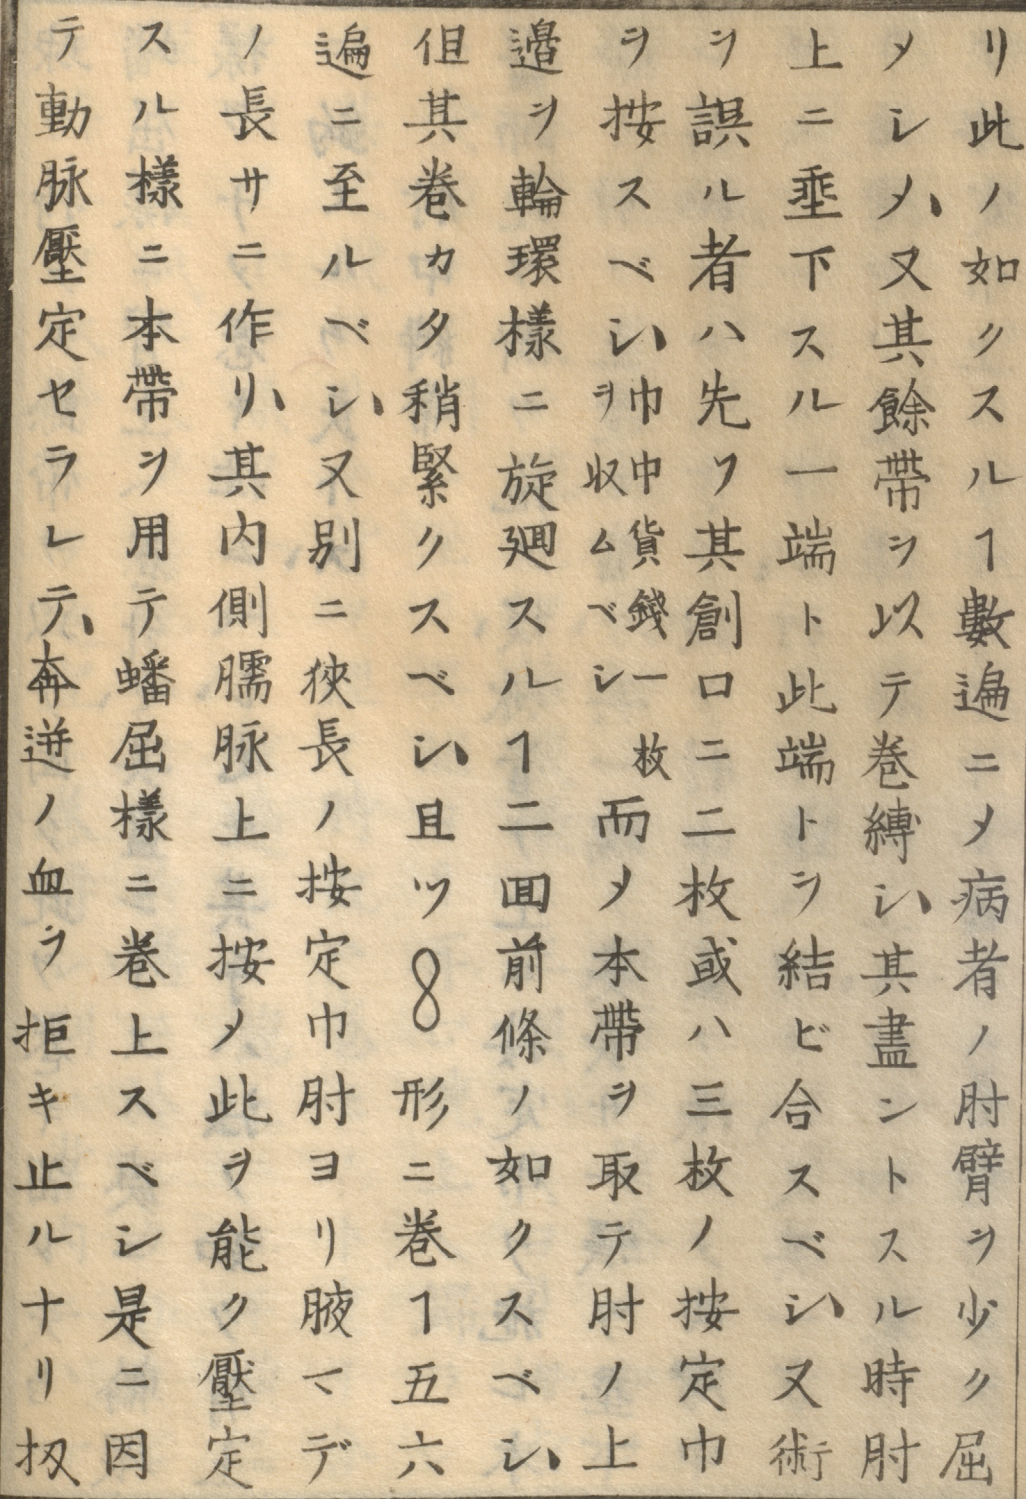 リ此ノ如クスルヿ數遍ニメ病者ノ肘臂ヲ少ク屈
メシメ、又其餘帶ヲ以テ巻縛シ、其盡ントスル時肘
上ニ埀下スル一端ト此端トヲ結ビ合スベシ、又術
ヲ誤ル者ハ先ツ其創口ニ二枚或ハ三枚ノ按定巾
ヲ按スベシ、巾中貨錢一枚ヲ収ムベシ而メ本帶ヲ取テ肘ノ上
邉ヲ輪環樣ニ旋廻スルヿ二囬前條ノ如クスベシ、
但其巻カタ稍緊クスベシ、且ツ8形ニ巻ヿ五六
遍ニ至ルベシ、又別ニ狹長ノ按定巾肘ヨリ腋マデ
ノ長サニ作リ、其内側臑脉上ニ按メ此ヲ能ク壓定
スル樣ニ本帶ヲ用テ蟠屈樣ニ巻上スベシ是ニ因
テ動脉壓定セラレテ、奔逆ノ血ヲ拒キ止ルナリ扨